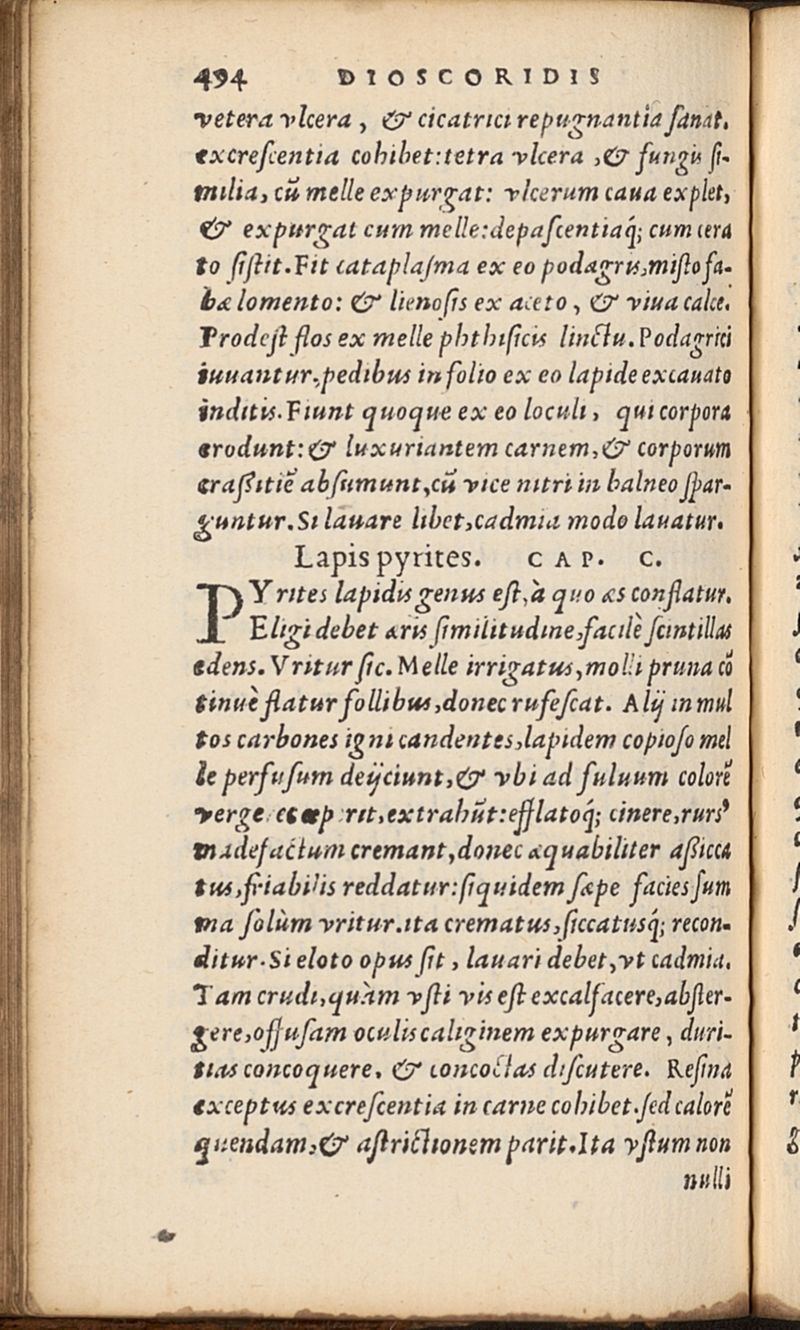 494 DIOSCORIDIS
vetera vlcera, & cicatrici repugnantia sanat.
excrescentia cohibet: tetra vlcera, & fungis si-
milia, cũ melle expurgat: vlcerum caua explet,
& expurgat cum melle: depascentiaq́; cum cera
to sistit. Fit cataplasma ex eo podagris, misto fa-
bæ lomento: & lienosis ex aceto, & viua calce.
Prodest flos ex melle phthisicis linctu. Podagrici
iuuantur, pedibus in solio ex eo lapide excauato
inditis. Fiunt quoque ex eo loculi, qui corpora
erodunt: & luxuriantem carnem, & corporum
crassitiẽ absumunt, cũ vice nitri in balneo spar-
guntur. Si lauare libet, cadmia modo lauatur.
Lapis pyrites. CAP. C.
PYrites lapidis genus est, à quo æs conflatur.
Eligi debet æris similitudine, facilè scintillas
edens. Vritur sic. Melle irrigatus, molli pruna cõ
tinuè flatur follibus, donec rufescat. Alij in mul
tos carbones igni candentes, lapidem copioso mel
le perfusum deijciunt, & vbi ad fuluum colorẽ
verge cœp rit, extrahũt: efflatoq́; cinere, rurs⁹
madefactum cremant, donec æquabiliter assicca
tus, friabilis reddatur: siquidem sæpe facies sum
ma solùm vritur. ita crematus, siccatusq́; recon-
ditur. Si eloto opus sit, lauari debet, vt cadmia.
Tam crudi, quàm vsti vis est excalfacere, abster-
gere, offusam oculis caliginem expurgare, duri-
tias concoquere, & concoctas discutere. Resina
exceptus excrescentia in carne cohibet. sed calorẽ
quendam, & astrictionem parit. Ita vstum non
nulli